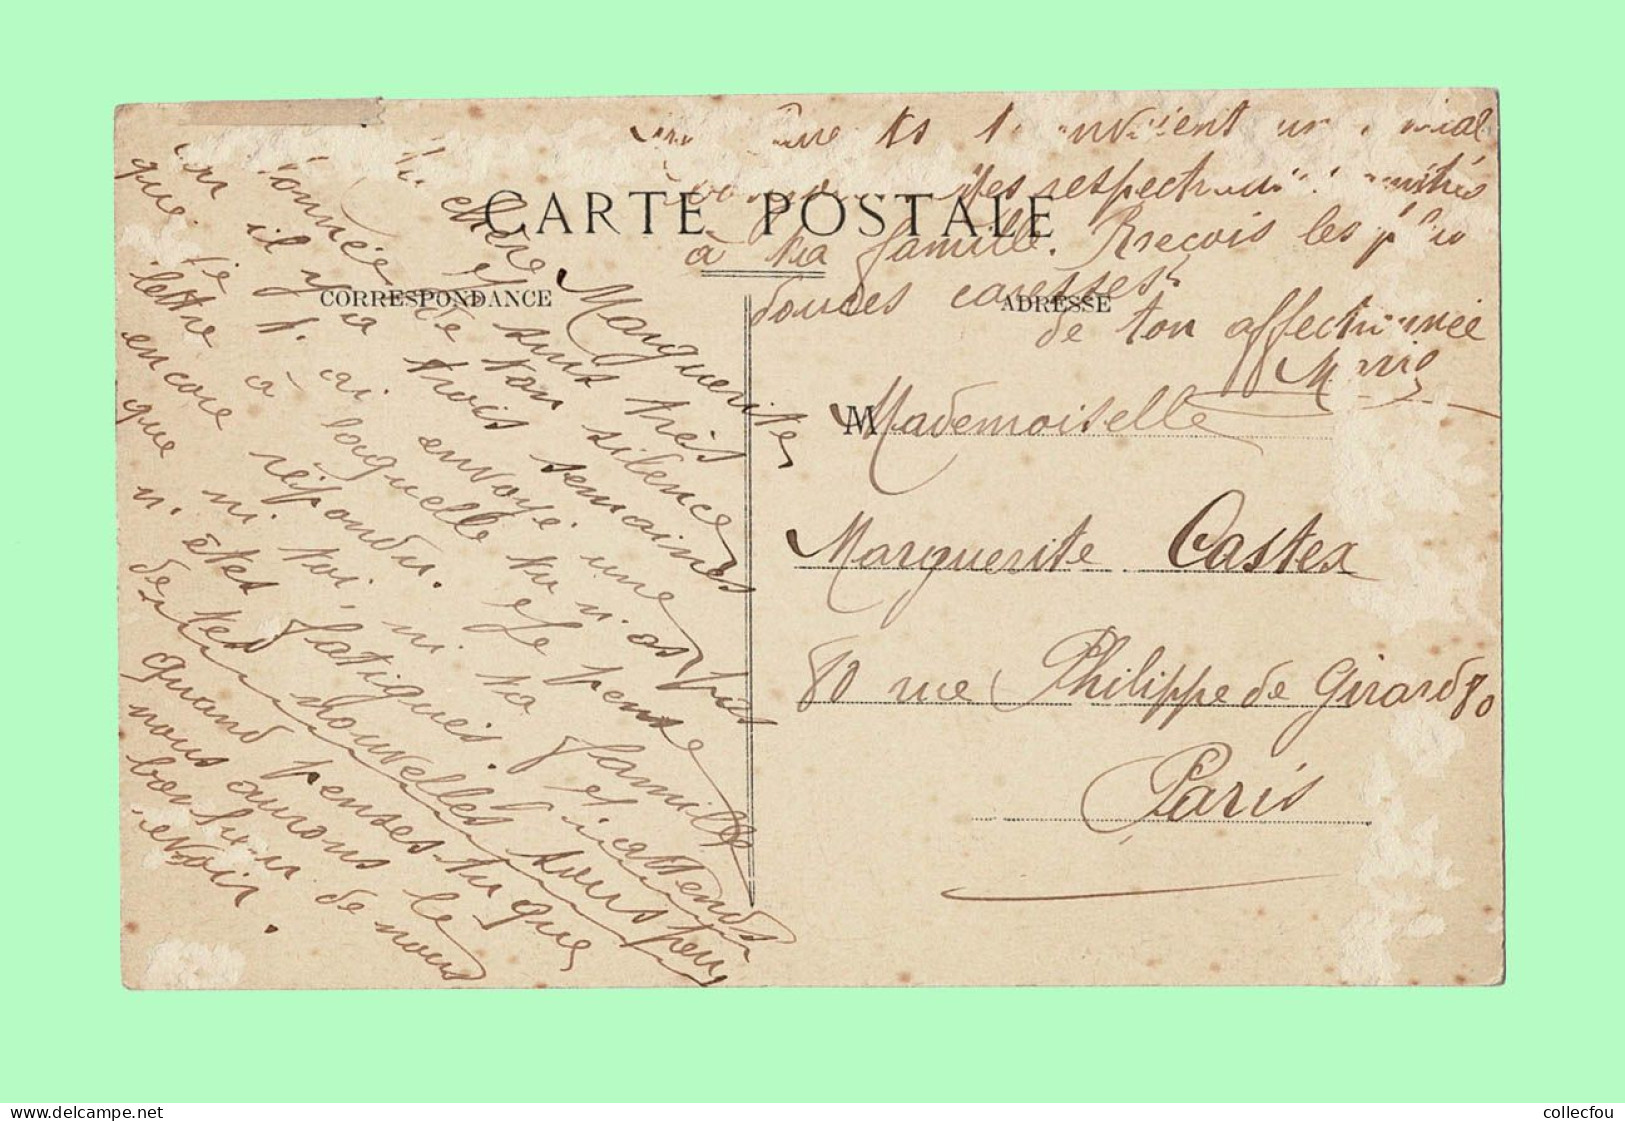 chère Marguerite,
Je suis très
étonnée de ton silence
il y a trois semaines
que je t'ai envoyé une
lettre à laquelle tu n'as pas
encore répondu. Je pense
que ni toi, ni ta famille
n'êtes fatigués. et j'attends
de tes nouvelles tous peu
quand penses-tu que
nous aurons le
bonheur de nous
revoir.
envoient un
Mes respectueuses amitiés
à ta famille. Reçois les plus
douces caresses
de ton affectionnée
CARTE POSTALE
CORRESPONDANCE
ADRESSE
M Mademoiselle
Marguerite Castex
80 rue Philippe de Girard 80
Paris
www.delcampe.net
collecfou